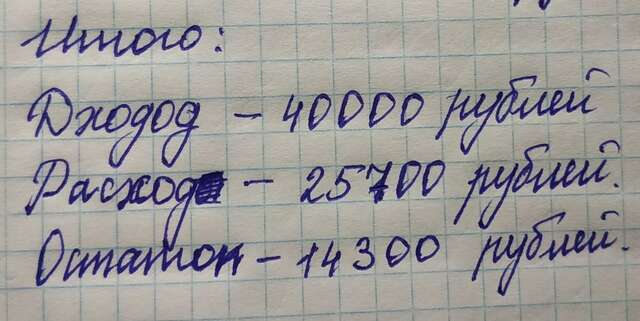 Итого:
Дходод – 40000 рублей
Расход – 25700 рублей.
Остаток – 14300 рублей.